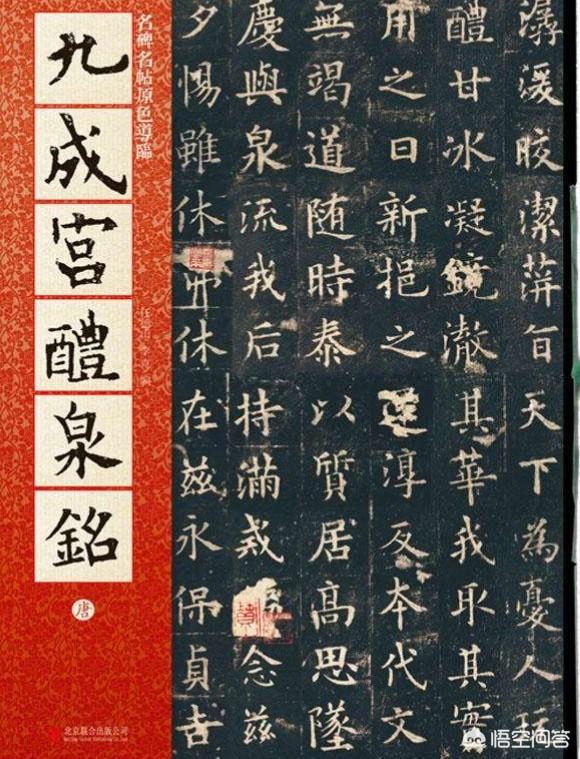 名碑名帖原色導臨
九成宮醴泉銘
唐
北京聯合出版公司
潺湲皎潔萍旨天下為憂人玩
醴甘冰凝鏡澈其華我取其實
用之日新挹之還淳反本代文
無竭道随時泰以質居高思墜
慶與泉流我后持滿戒念茲
夕惕雖休弗休在茲永保貞吉
悟空问答